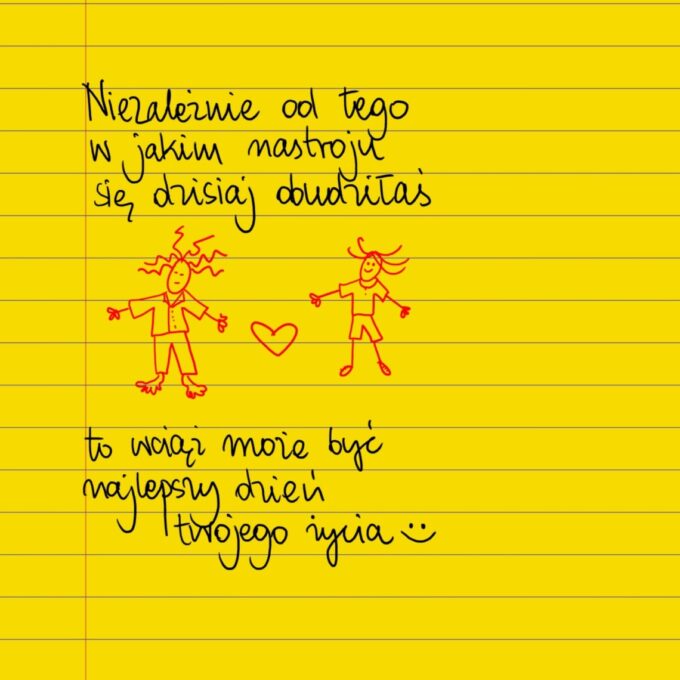 Niezależnie od tego
w jakim nastroju
się dzisiaj obudziłaś
to wciąż może być
najlepszy dzień
twojego życia :)